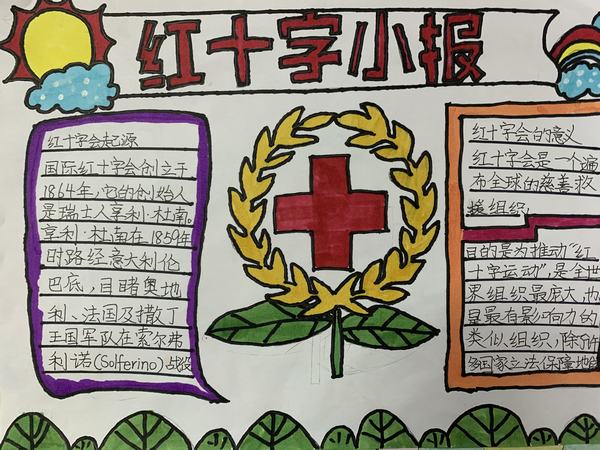 红十字小报
红十字会起源
国际红十字会创立于
1864年,它的创始人
是瑞士人亨利·杜南。
亨利·杜南在1859年
时路经意大利伦
巴底,目睹奥地
利、法国及撒丁
王国军队在索尔弗
利诺(Solferino)战役
红十字会的意义
红十字会是一个遍
布全球的慈善救
援组织
目的是为推动“红
十字运动”,是全世
界组织最庞大,也
是最有影响力的
类似组织,除
多国家立法保障